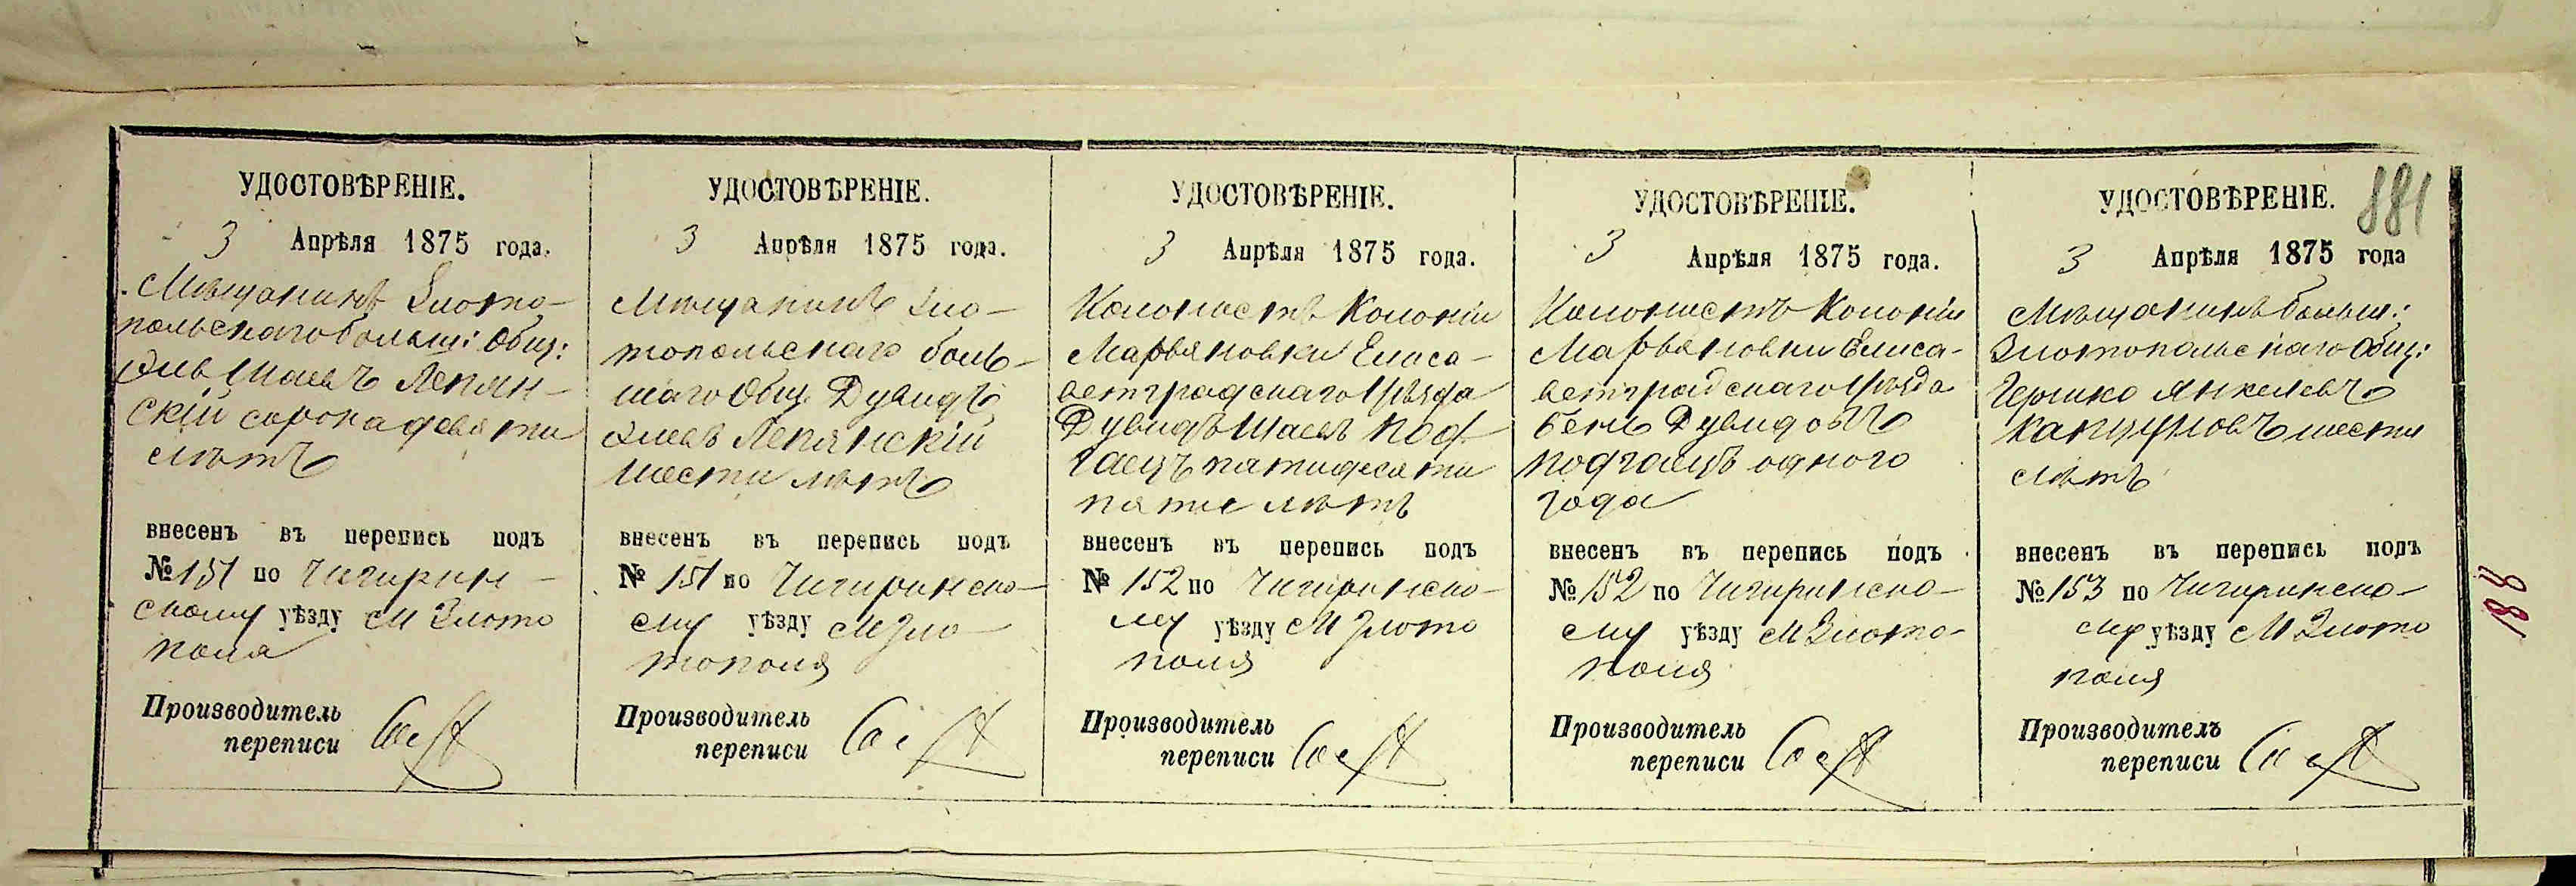 881
УДОСТОВѢРЕНІЕ.
3 Апрѣля 1875 года.
Мѣщанинъ Злото-
польскаго больш: Общ:
Эль Шаевъ Лепян-
скій сорока девяти
лѣтъ
внесенъ въ перепись подъ
№ 151 по Чигирин-
скому уѣзду М Злото
поля
Производитель
переписи
УДОСТОВѢРЕНІЕ.
3 Апрѣля 1875 года.
Мѣщанинъ Зло-
топольскаго боль-
шаго Общ Дувидъ
Элевъ Лепянскій
шести лѣтъ
внесенъ въ перепись подъ
№ 151 по Чигиринско-
му уѣзду М Зло-
тополя
Производитель
переписи
УДОСТОВѢРЕНІЕ.
3 Апрѣля 1875 года.
Колонистъ Колоніи
Марьяновки Елиса-
ветградскаго Уѣзда
Дувидъ Шаевъ Под-
гаецъ пятидесяти
пяти лѣтъ
внесенъ въ перепись подъ
№ 152 по Чигиринско-
му уѣзду М Злото
поля
Производитель
переписи
УДОСТОВѢРЕНІЕ.
3 Апрѣля 1875 года.
Колонистъ Колоніи
Марьяновки Елиса-
ветградскаго Уѣзда
Бень Дувидовъ
Подгаецъ одного
года
внесенъ въ перепись подъ
№ 152 по Чигиринско-
му уѣзду М Злото-
поля
Производитель
переписи
УДОСТОВѢРЕНІЕ.
3 Апрѣля 1875 года
Мѣщанинъ больш:
Злотопольскаго Общ:
Гершко Янкелевъ
Канцуновъ шести
лѣтъ
внесенъ въ перепись подъ
№ 153 по Чигиринско-
му уѣзду М Злото
поля
Производитель
переписи
188